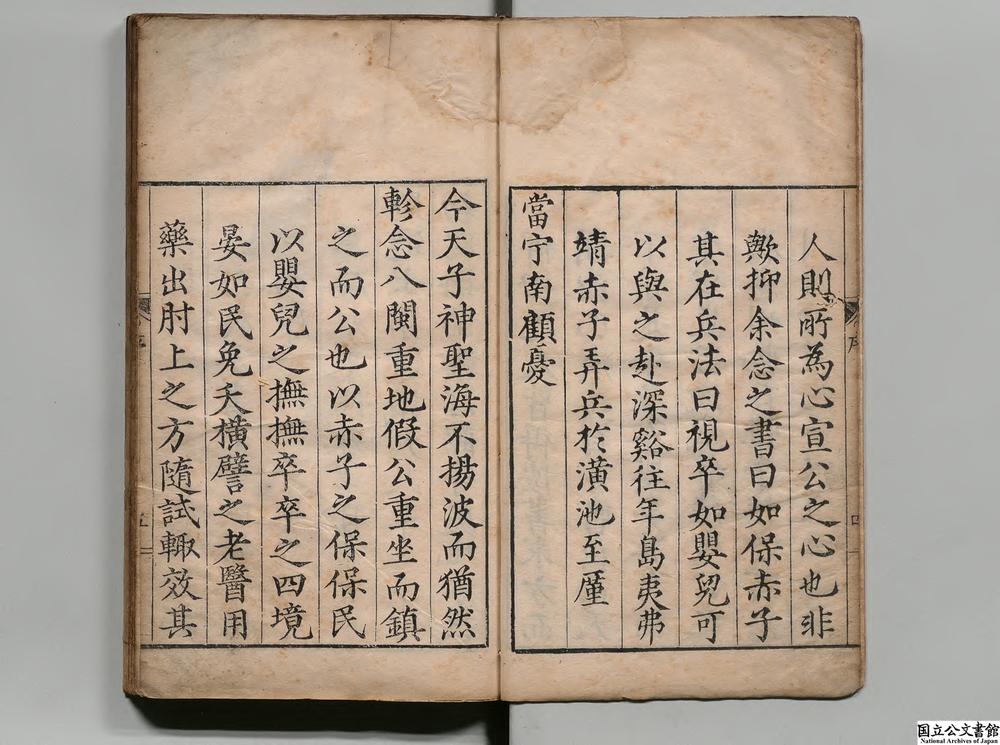 人則所為心宣公之心也非
歟抑余念之書曰如保赤子
其在兵法曰視卒如嬰兒可
以與之赴深谿往年島夷弗
靖赤子弄兵於潢池至厪
當宁南顧憂
今天子神聖海不揚波而猶然
軫念八閩重地假公重坐而鎮
之而公也以赤子之保保民
以嬰兒之撫撫卒卒之四境
晏如民免夭橫譬之老醫用
藥出肘上之方隨試輙效其
国立公文書館
National Archives of Japan